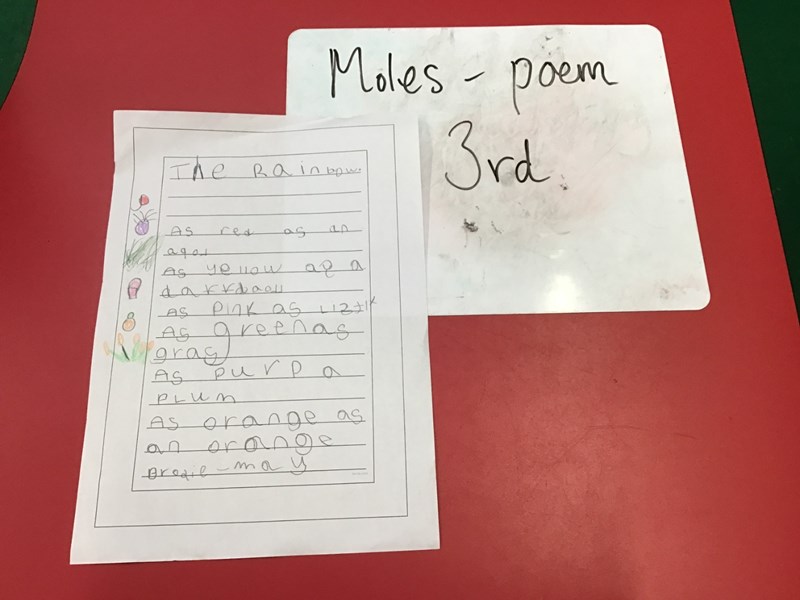 Moles - poem
3rd
The Rainbow
As red as an
apol
As yellow as a
As pink as Liztik
As green as
gras
As purp a
plum
As orange as
an orange
Brodie-may